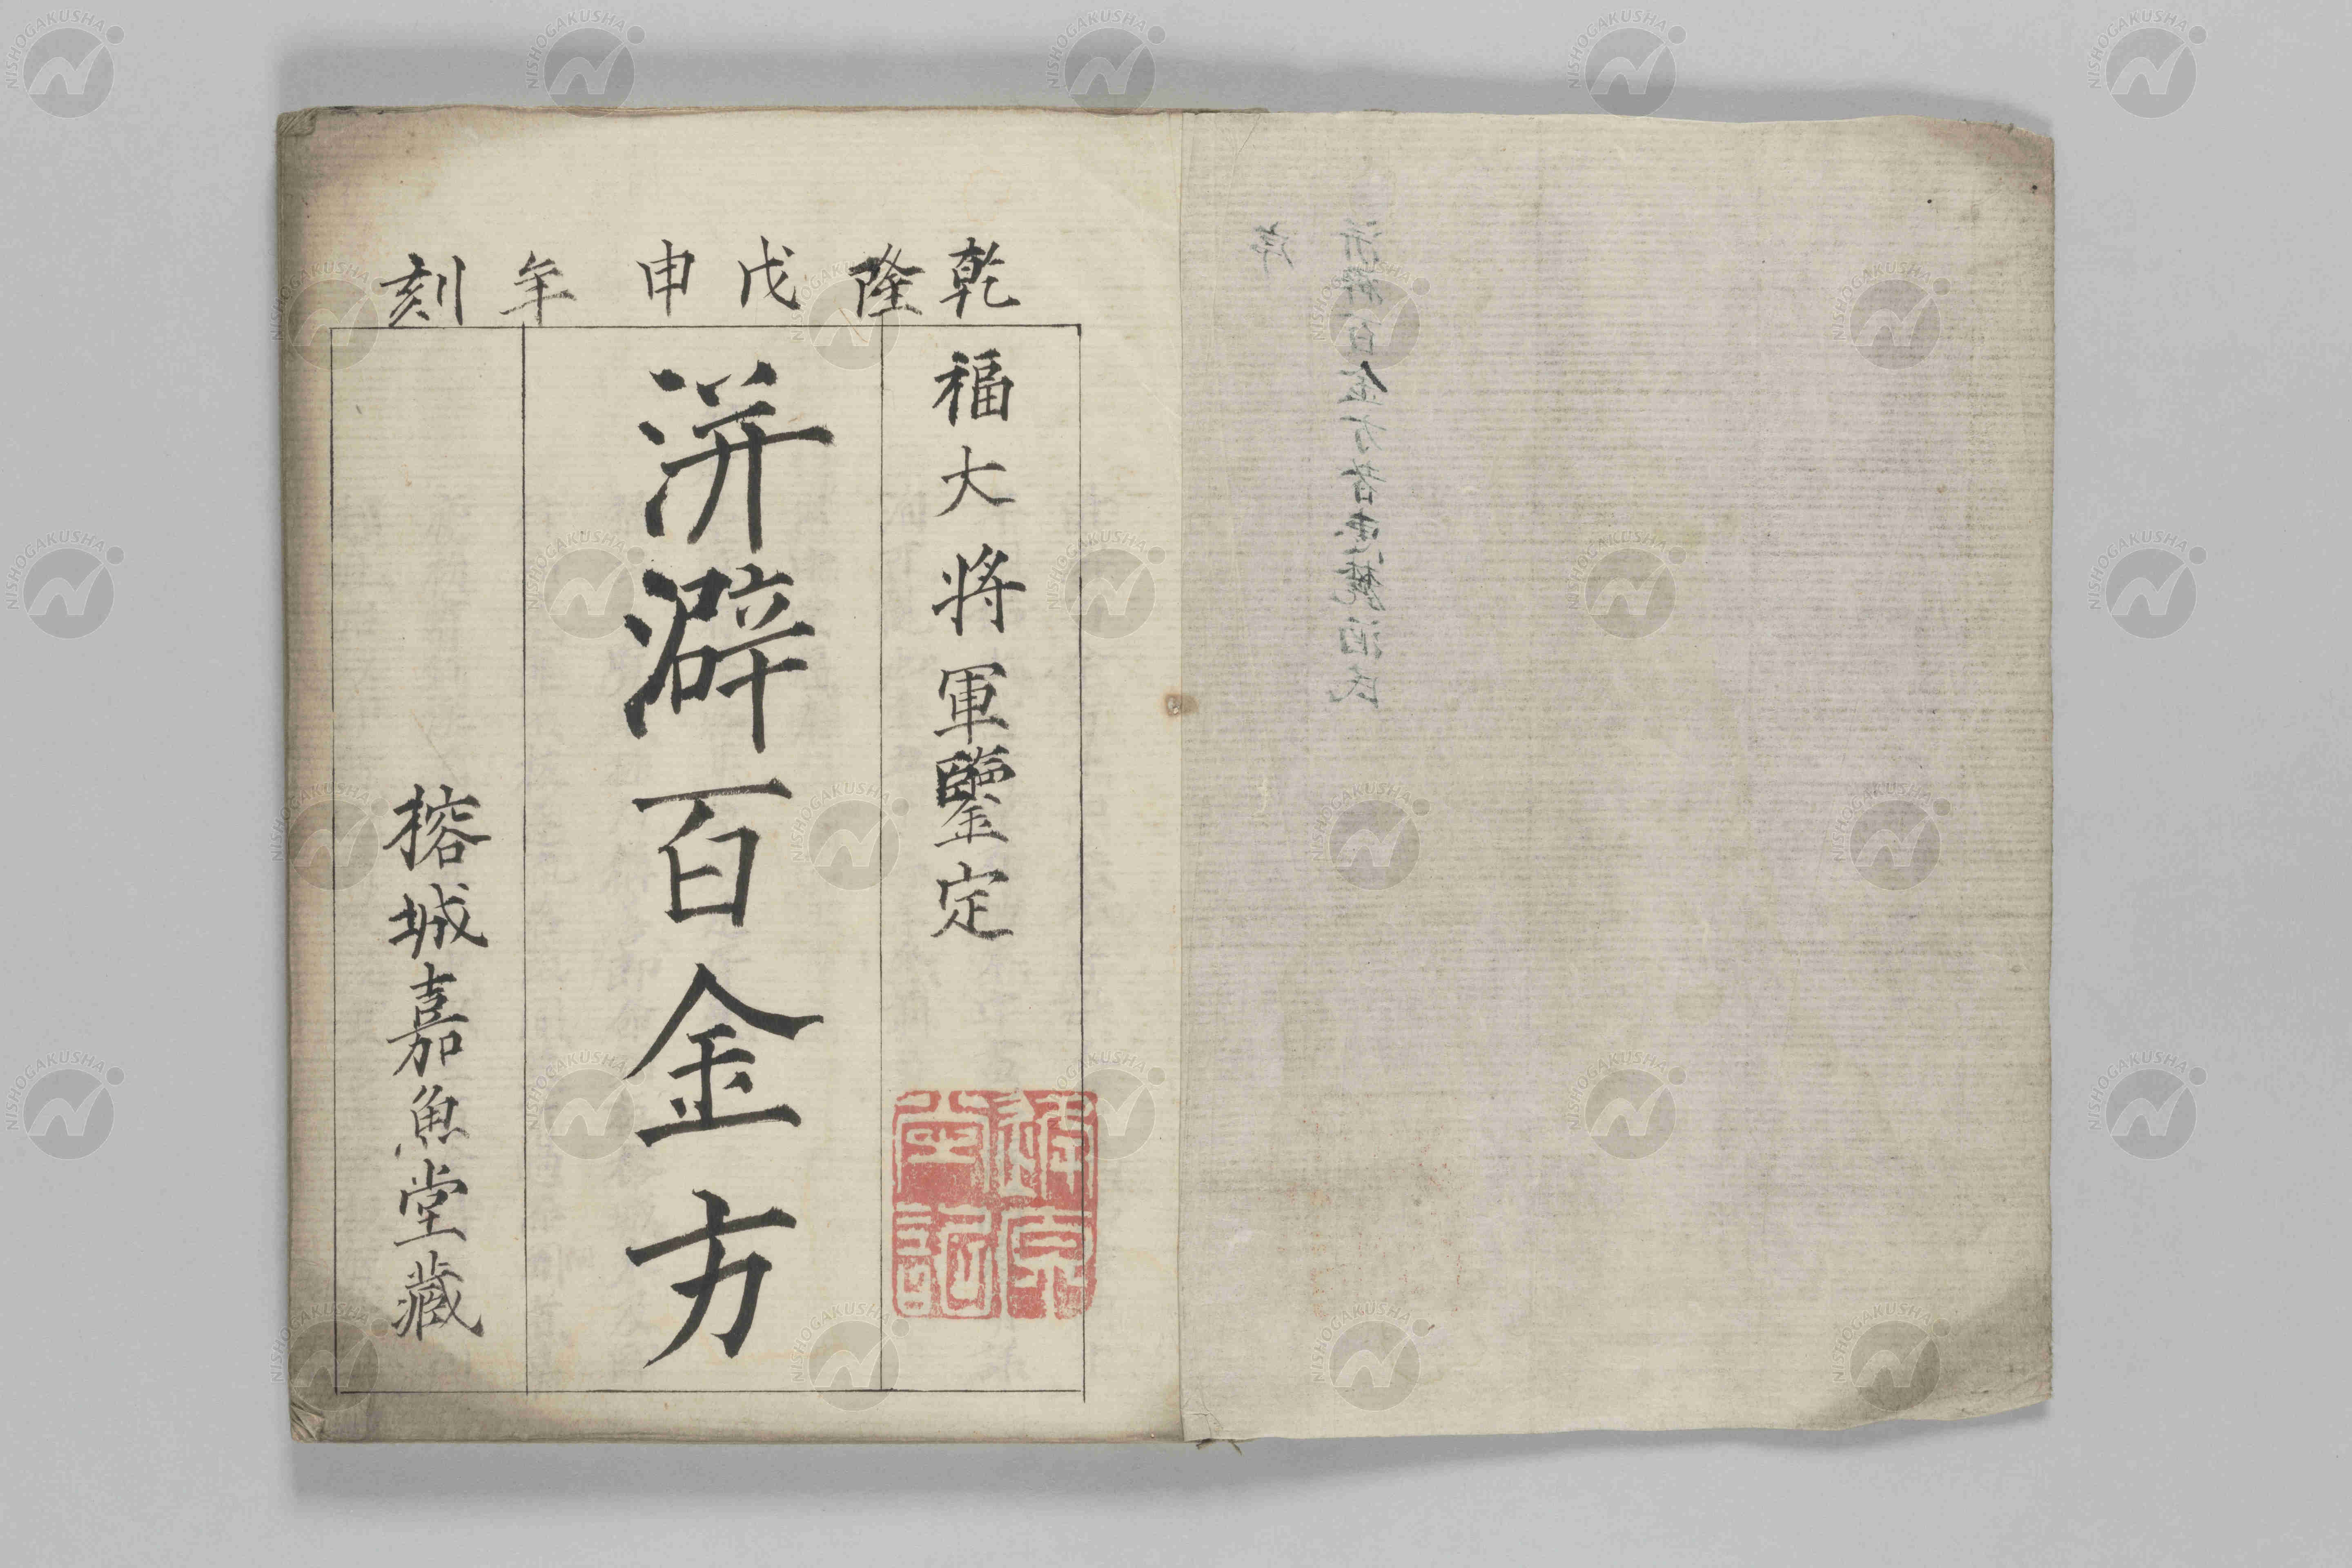 乾隆戊申年刻
福大將軍鑒定
洴澼百金方
榕城嘉魚堂藏
NISHOGAKUSHA